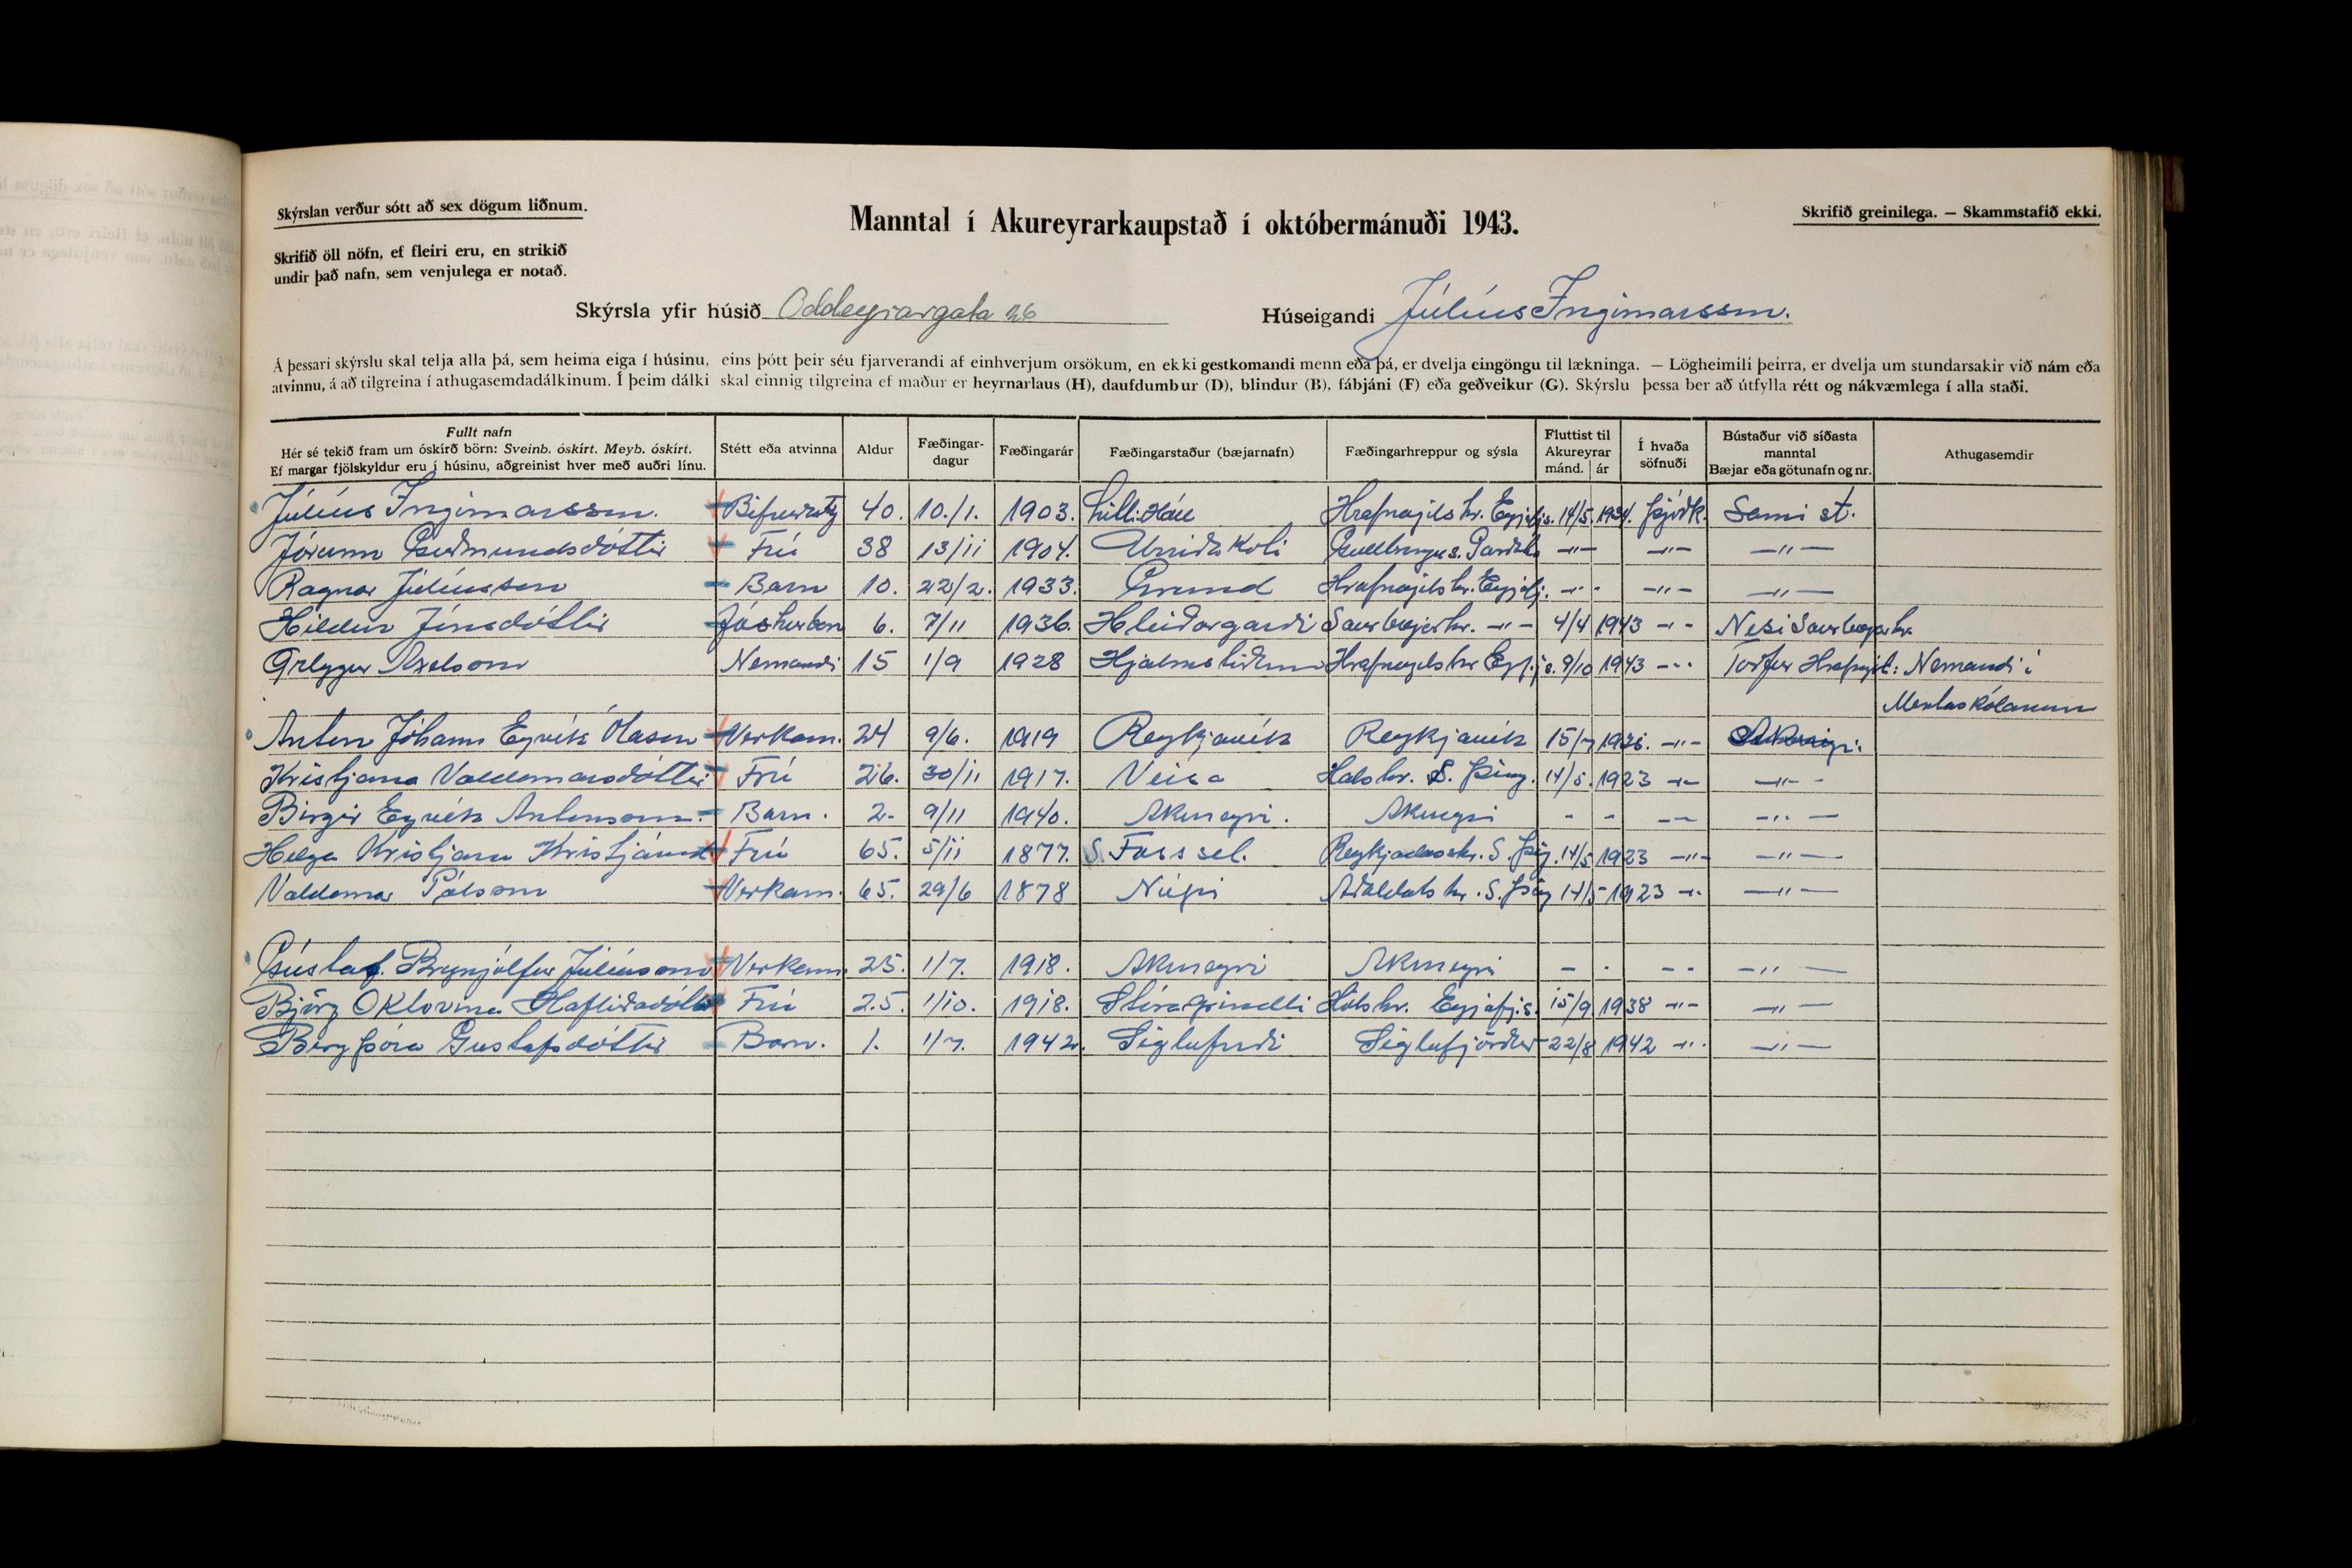 Skýrslan verður sótt að sex dögum liðnum.
Manntal í Akureyrarkaupstað í októbermánuði 1943.
Skrifið greinilega. — Skammstafið ekki.
Skrifið öll nöfn, ef fleiri eru, en strikið
undir það nafn, sem venjulega er notað.
Skýrsla yfir húsið Oddeyrargata 26 Húseigandi Júlíus Ingimarsson.
Á þessari skýrslu skal telja alla þá, sem heima eiga í húsinu, eins þótt þeir séu fjarverandi af einhverjum orsökum, en ekki gestkomandi menn eða þá, er dvelja eingöngu til lækninga. — Lögheimili þeirra, er dvelja um stundarsakir við nám eða
atvinnu, á að tilgreina í athugasemdadálkinum. Í þeim dálki skal einnig tilgreina ef maður er heyrnarlaus (H), daufdumbur (D), blindur (B), fábjáni (F) eða geðveikur (G). Skýrslu þessa ber að útfylla rétt og nákvæmlega í alla staði.
Fullt nafn
Hér sé tekið fram um óskírð börn: Sveinb. óskírt. Meyb. óskírt.
Ef margar fjölskyldur eru í húsinu, aðgreinist hver með auðri línu.
Stétt eða atvinna
Aldur
Fæðingar-
dagur
Fæðingarár
Fæðingarstaður (bæjarnafn)
Fæðingarhreppur og sýsla
Fluttist til
Akureyrar
mánd. | ár
Í hvaða
söfnuði
Bústaður við síðasta
manntal
Bæjar eða götunafn og nr.
Athugasemdir
Júlíus Ingimarsson. Bifreiðstj 40. 10./1. 1903. Litli-Hóll Hrafnagils hr. Eyjafj.s. 14/5. 1934. Þjóðk. Sami st.
Jórunn Guðmundsdóttir Frú 38 13/11 1904. Gullbringus. -"- -"- -"-
Ragnar Júlíusson Barn 10. 22/2. 1933. Grund Hrafnagils hr. Eyjafj. -"- -"- -"-
Hildur Jónsdóttir Fósturbarn 6. 7/11 1936. Hleiðargarði Saurbæjarhr. -"- 4/4 1943 -"- Nesi Saurbæjarhr.
Axelsson Nemandi 15 1/9 1928 Hrafnagils hr Eyf.s. 9/10 1943 -"- Torfur Hrafnagil: Nemandi í
Mentaskólanum
Anton Jóhann Eyvík Ólason Verkam. 24 9/6. 1919 Reykjavík Reykjavík 15/7 -"- Akureyri.
Kristjana Valdemarsdóttir Frú 26. 30/11 1917. Veisa Hals hr. S. Þing. 14/5. 1923 -"- -"-
Birgir Eyvík Antonsson. Barn. 2. 9/11 1940. Akureyri. Akureyri - - -"- -"-
Helga Kristjana Kristjánsd Frú 65. 5/11 1877. S. Fossel. Reykjadalshr. S. Þing. 14/5 1923 -"- -"-
Valdemar Pálsson Verkam. 65. 29/6 1878 Núpi Aðaldals hr. S. Þing 14/5 1923 -"- -"-
Gústaf. Brynjólfur Júlíusson Verkam. 25. 1/7. 1918. Akureyri Akureyri - - - - -"-
Björg Oktovína Hafliðadóttir Frú 25. 1/10. 1918. Stóragrindli Hóls hr. Eyjafj.s. 15/9 1938 -"- -"-
Bergþóra Gustafsdóttir Barn. 1. 1/7. 1942. Siglufirði Siglufjörður 22/8 1942 -"- -"-